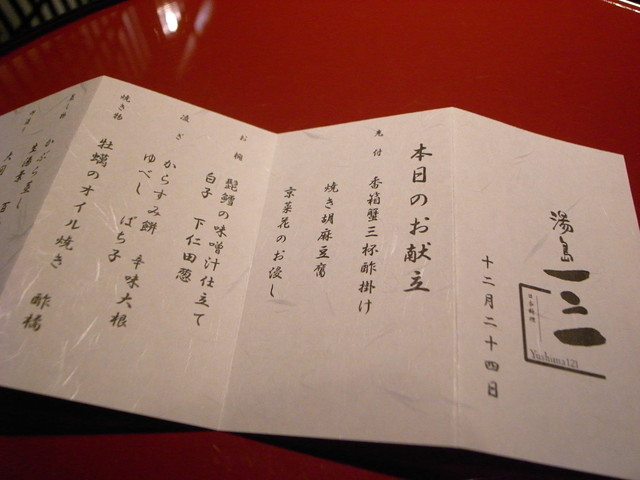 湯島一二一
日本料理
Yushima121
十二月二十四日
本日のお献立
先付
香箱蟹三杯酢掛け
焼き胡麻豆腐
京菜花のお浸し
お椀
鱈の味噌汁仕立て
白子 下仁田葱
凌ぎ
からすみ餅 辛味大根
ゆべし ばち子
焼き物
牡蠣のオイル焼き 酢橘
蒸し物
かぶら蒸し